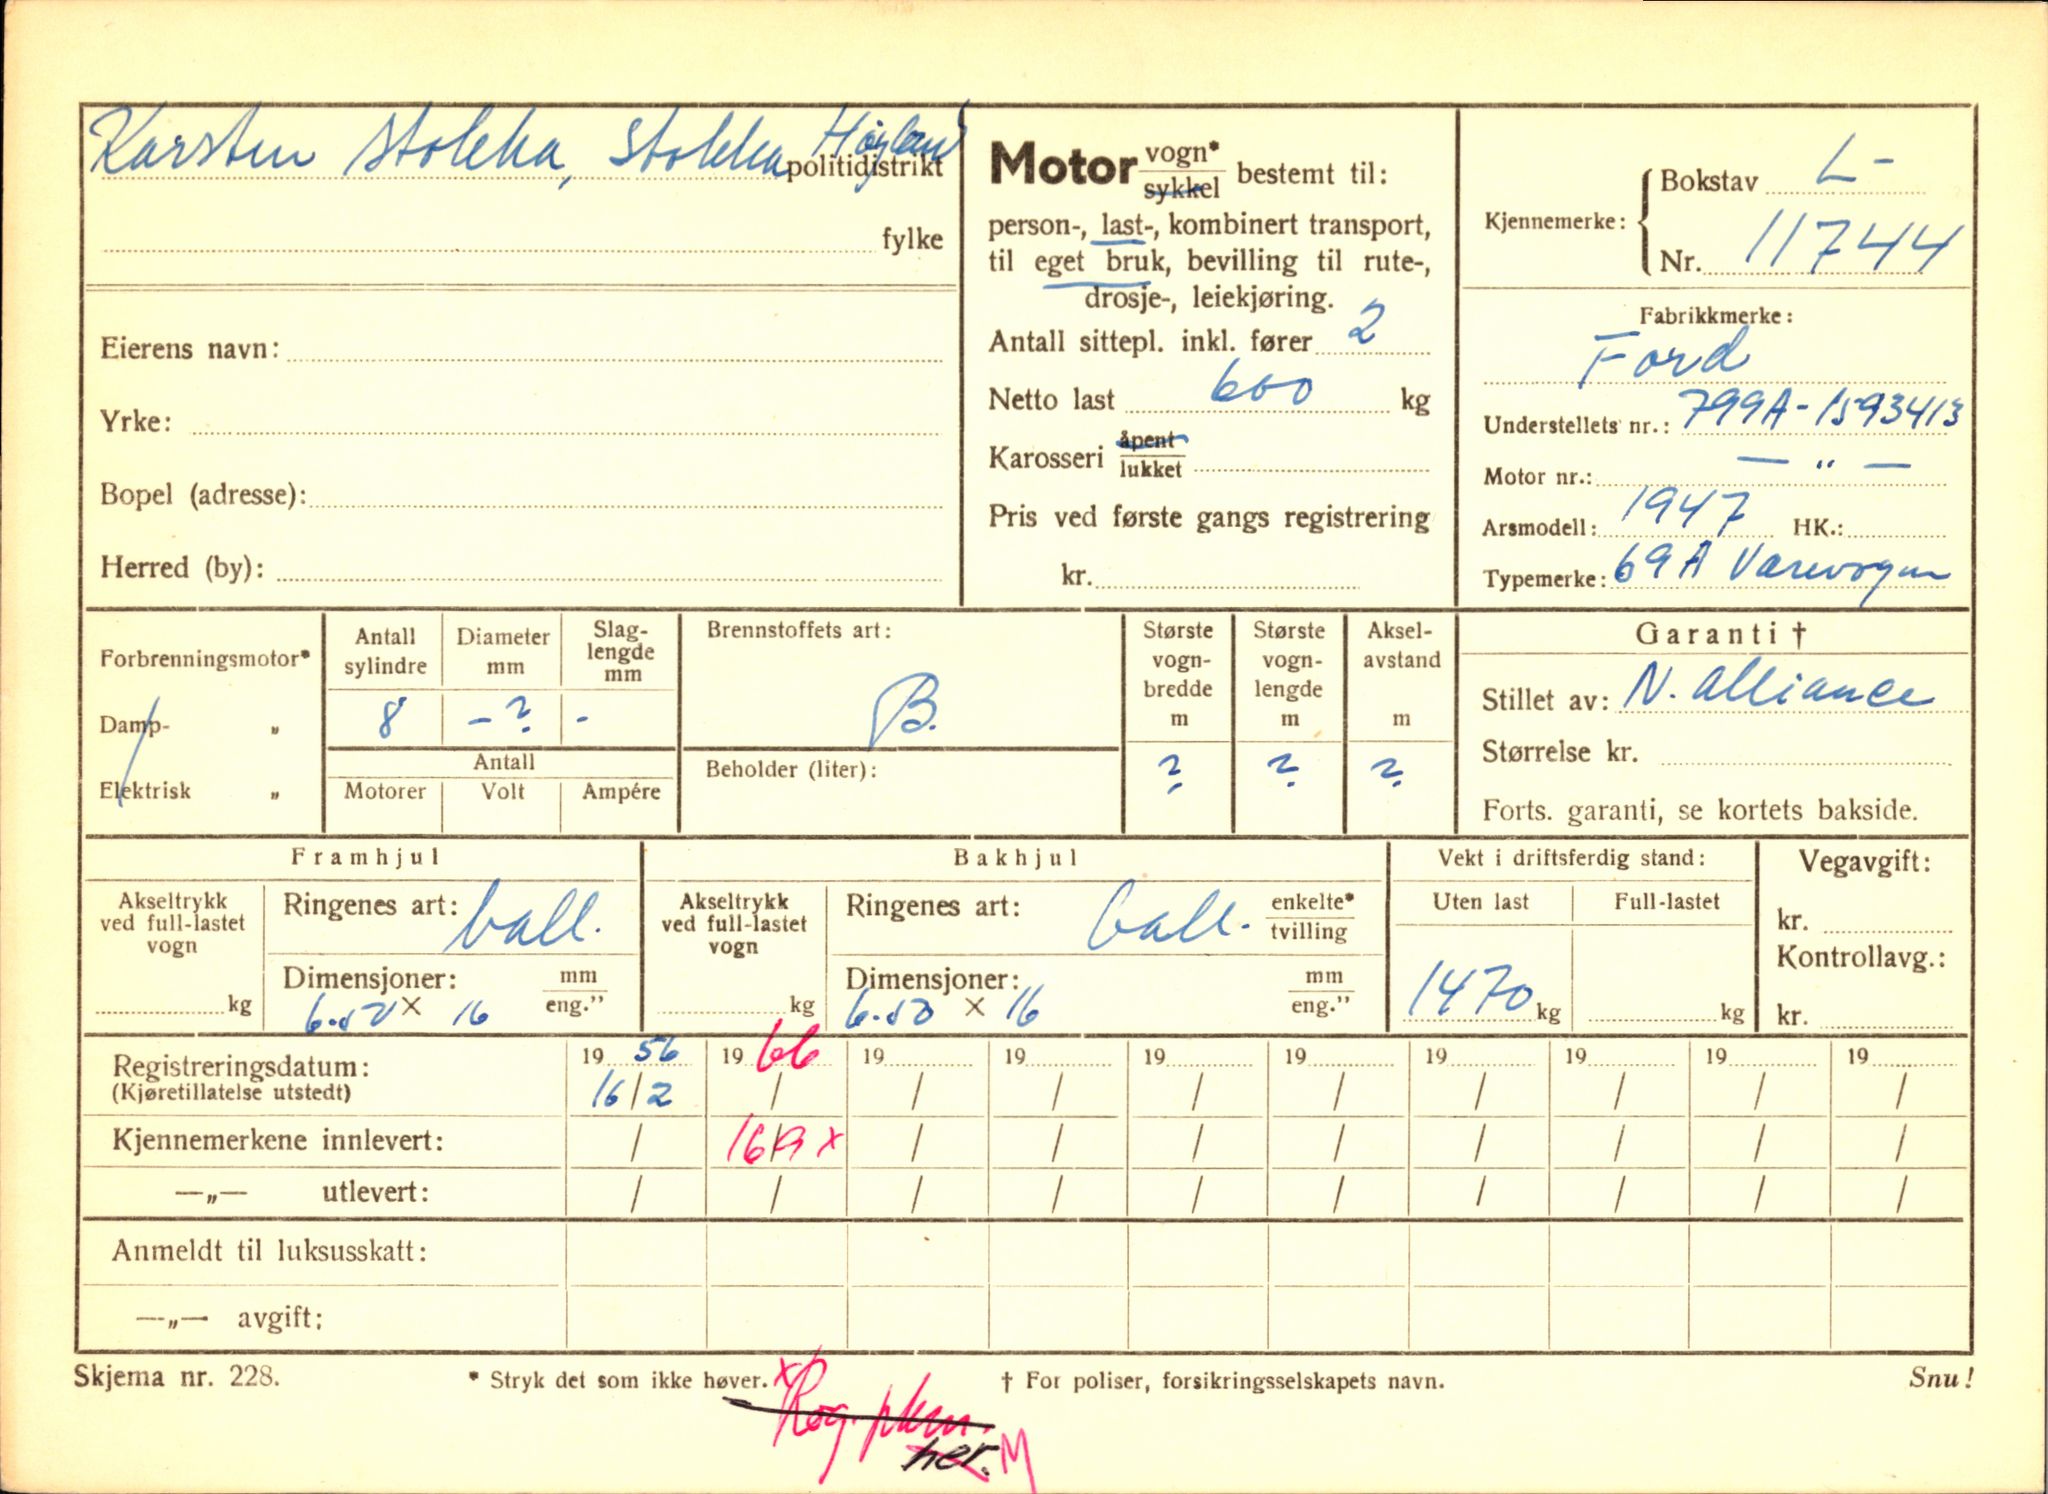 Karsten Stokka, Stokka Høyland
politidistrikt
fylke
Eierens navn:
Yrke:
Bopel (adresse):
Herred (by):
Motor vogn* sykkel bestemt til:
person-, last-, kombinert transport,
til eget bruk, bevilling til rute-,
drosje-, leiekjøring.
Antall sittepl. inkl. fører 2
Netto last 600 kg
Karosseri åpent lukket
Pris ved første gangs registrering
kr.
Kjennemerke: Bokstav L-
Nr. 11744
Fabrikkmerke:
Ford
Understellets nr.: 799A-1593413
Motor nr.: — " —
Arsmodell: 1947 HK.:
Typemerke: 69A Varevogn
Forbrenningsmotor*
Damp- „
Elektrisk „
Antall sylindre
Diameter mm
Slag-lengde mm
8 - ? -
Antall
Motorer Volt Ampére
Brennstoffets art:
B.
Beholder (liter):
Største vogn-bredde m
?
Største vogn-lengde m
?
Aksel-avstand m
?
Garanti †
Stillet av: N. Alliance
Størrelse kr.
Forts. garanti, se kortets bakside.
Framhjul
Akseltrykk ved full-lastet vogn
kg
Ringenes art: ball.
Dimensjoner: mm eng."
6.50 x 16
Bakhjul
Akseltrykk ved full-lastet vogn
kg
Ringenes art: ball. enkelte* tvilling
Dimensjoner: mm eng."
6.50 x 16
Vekt i driftsferdig stand:
Uten last Full-lastet
1470 kg kg
Vegavgift:
kr.
Kontrollavg.:
kr.
Registreringsdatum: 19 56 19 66 19 19 19 19 19 19 19 19
(Kjøretillatelse utstedt) 16/2 / / / / / / / / /
Kjennemerkene innlevert: / 16/9 x / / / / / / / /
—„— utlevert: / / / / / / / / / /
Anmeldt til luksusskatt:
—„— avgift:
Skjema nr. 228. * Stryk det som ikke høver. † For poliser, forsikringsselskapets navn. Snu!
x
her. M